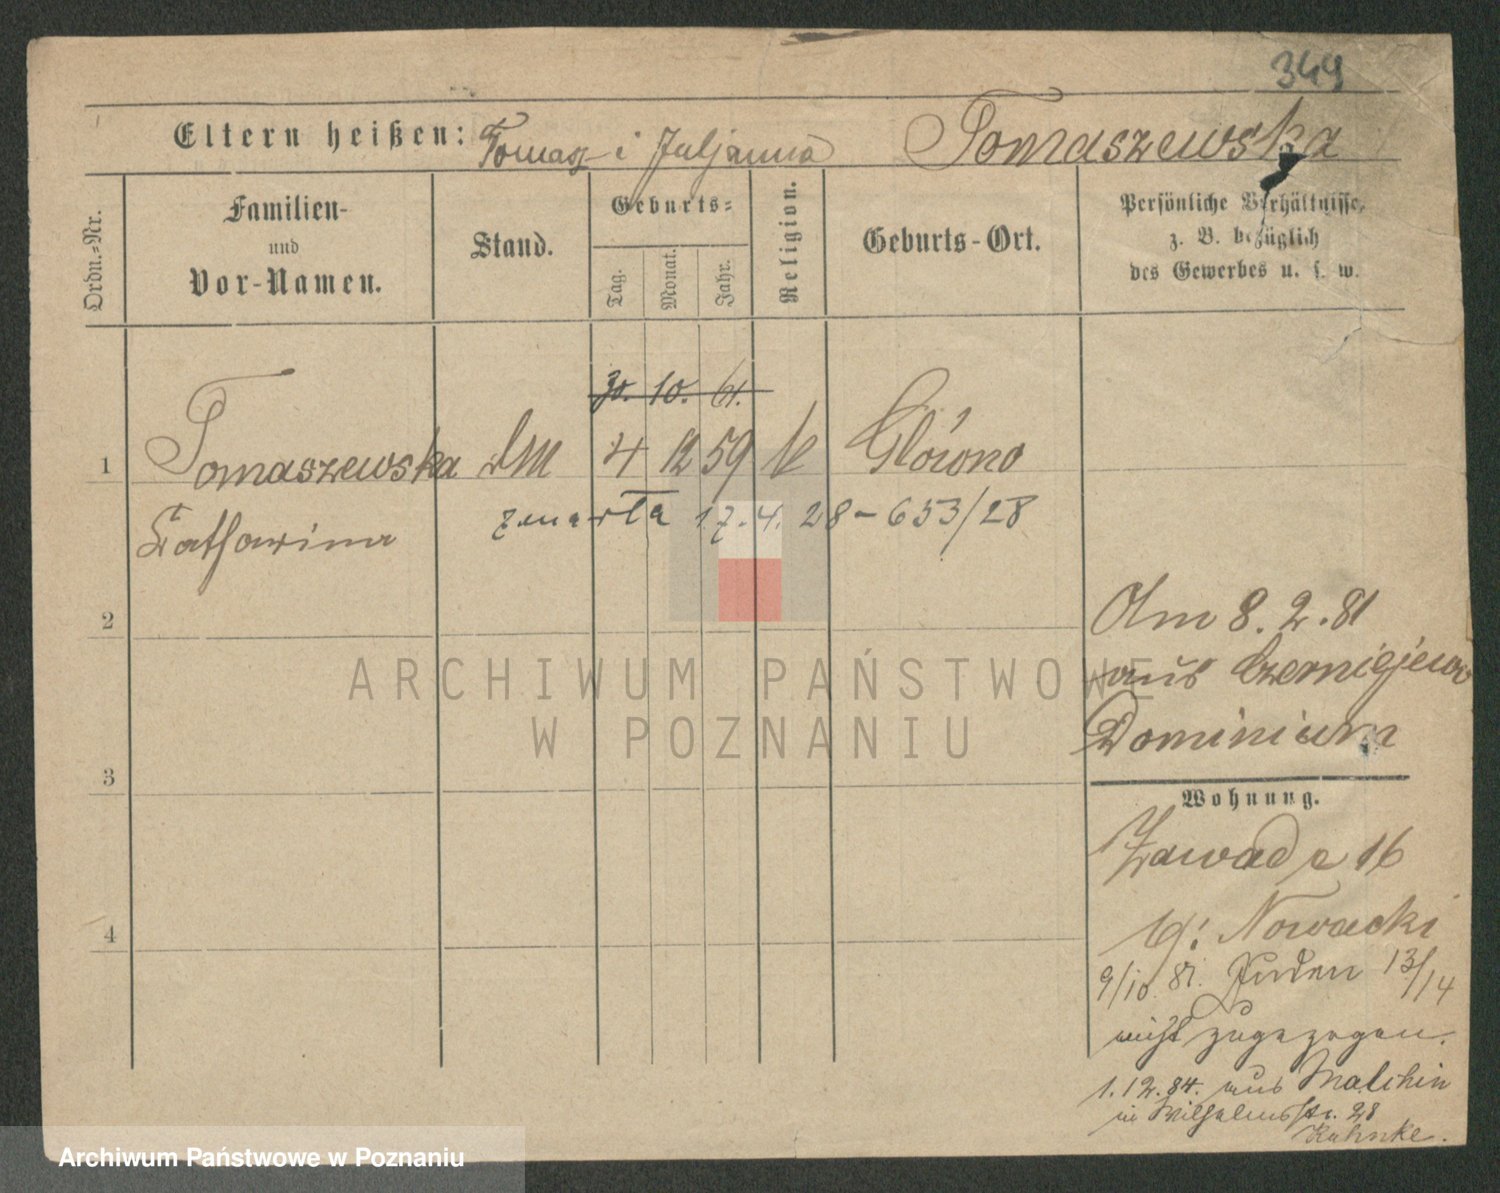 349
Eltern heißen: Tomasz i Juljanna Tomaszewska
Ordn.-Nr.
Familien-
und
Vor-Namen.
Stand.
Geburts-
Tag.
Monat.
Jahr.
Religion.
Geburts-Ort.
Persönliche Verhältnisse,
z. B. bezüglich
des Gewerbes u. s. w.
30. 10. 61.
1 Tomaszewska 4 12 59 k Główno
Catharina
zmarła 17.4.28 - 653/28
2
3
4
Am 8.2.81
aus Czerniejewo
Dominium
Wohnung.
Zawade 16
b/. Nowacki
9/10 81. Juden 13/14
nicht zugezogen.
1.12.84. aus Malchin
in Wilhelmsstr. 28
Kuhnke.
ARCHIWUM PAŃSTWOWE
W POZNANIU
Archiwum Państwowe w Poznaniu